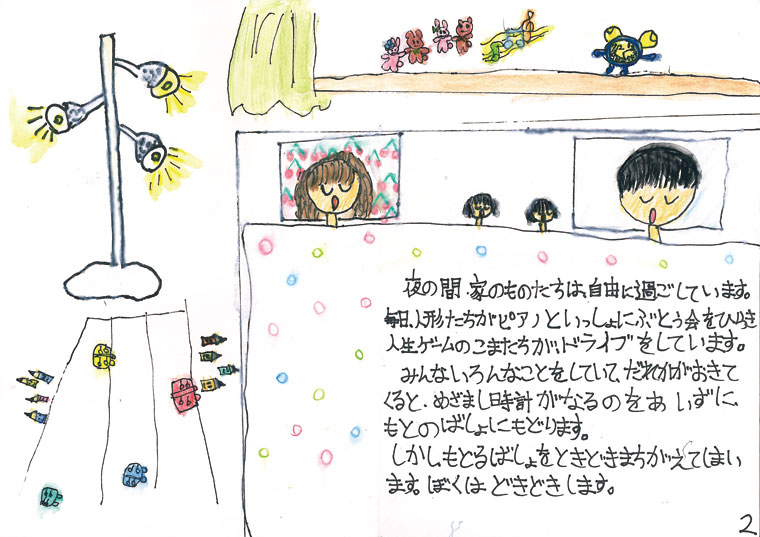 夜の間、家のものたちは、自由に過ごしています。
毎日、人形たちがピアノといっしょにぶとう会をひらき
人生ゲームのこまたちが、ドライブをしています。
みんないろんなことをしていて、だれかがおきて
くると、めざまし時計がなるのをあいずに、
もとのばしょにもどります。
しかし、もどるばしょをときどきまちがえてしまい
ます。ぼくは どきどきします。
2